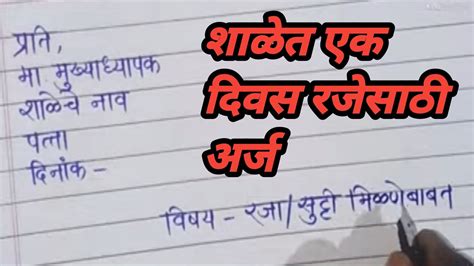 प्रति,
मा. मुख्याध्यापक
शाळेचे नाव
पत्ता
दिनांक -
शाळेत एक
दिवस रजेसाठी
अर्ज
विषय - रजा/सुट्टी मिळणेबाबत